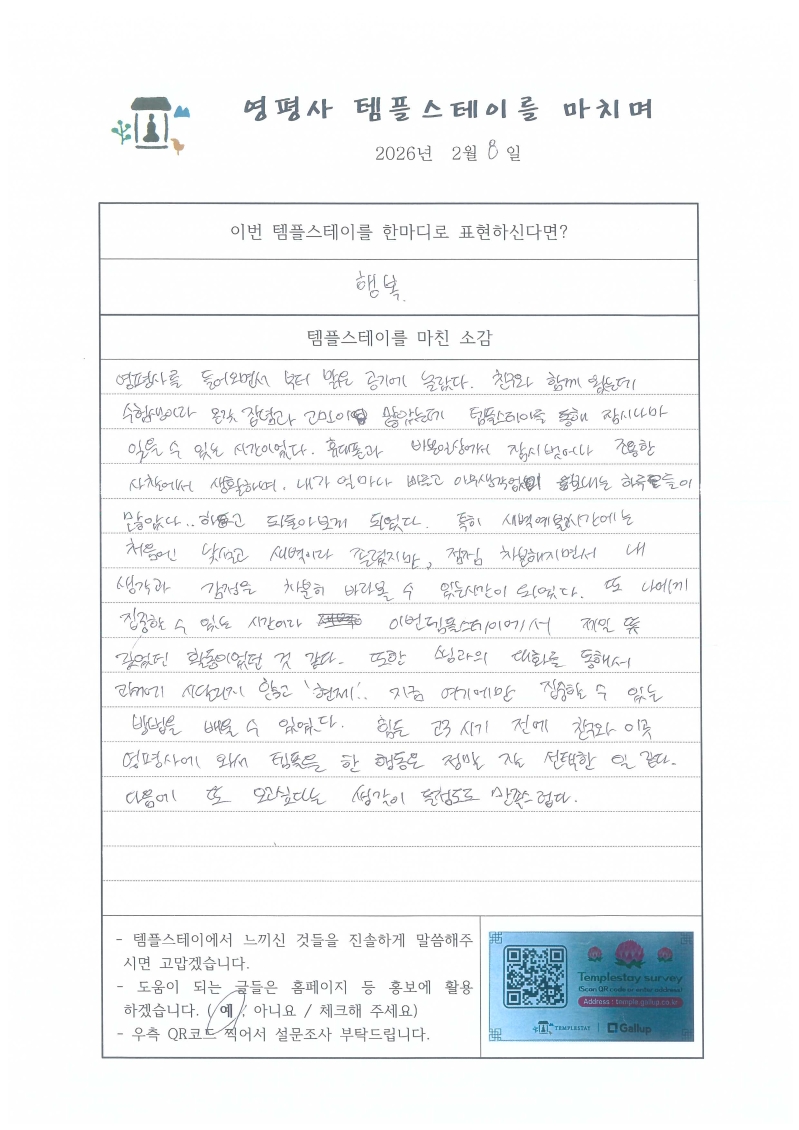 영평사 템플스테이를 마치며
2026년 2월 8일
이번 템플스테이를 한마디로 표현하신다면?
행복.
템플스테이를 마친 소감
영평사를 들어오면서 부터 맑은 공기에 놀랐다. 친구와 함께 왔는데
수험생이라 온갖 잡념과 고민이 많았는데 템플스테이를 통해 잠시나마
잊을 수 있는 시간이었다. 휴대폰과 바쁜일상에서 잠시 벗어나 조용한
사찰에서 생활하며, 내가 얼마나 바쁘고 아무생각없이 보내는 하루들이
많았다.. 하고 되돌아보게 되었다. 특히 새벽예불시간에는
처음엔 낯설고 새벽이라 졸렸지만, 점점 차분해지면서 내
생각과 감정을 차분히 바라볼 수 있는시간이 되었다. 또 나에게
집중할 수 있는 시간이라 이번템플스테이에서 제일 뜻
깊었던 활동이었던 것 같다. 또한 스님과의 대화를 통해서
과거에 시달리지 않고 '현재'. 지금 여기에만 집중할 수 있는
방법을 배울 수 있었다. 힘든 고3 시기 전에 친구와 이곳
영평사에 와서 템플을 한 행동은 정말 잘 선택한 일 같다.
다음에 또 오고싶다는 생각이 들정도로 만족스럽다.
- 템플스테이에서 느끼신 것들을 진솔하게 말씀해주
시면 고맙겠습니다.
- 도움이 되는 글들은 홈페이지 등 홍보에 활용
하겠습니다. ( 예 / 아니요 / 체크해 주세요)
- 우측 QR코드 찍어서 설문조사 부탁드립니다.
Templestay survey
(Scan QR code or enter address)
Address : temple.gallup.co.kr
TEMPLESTAY | Gallup